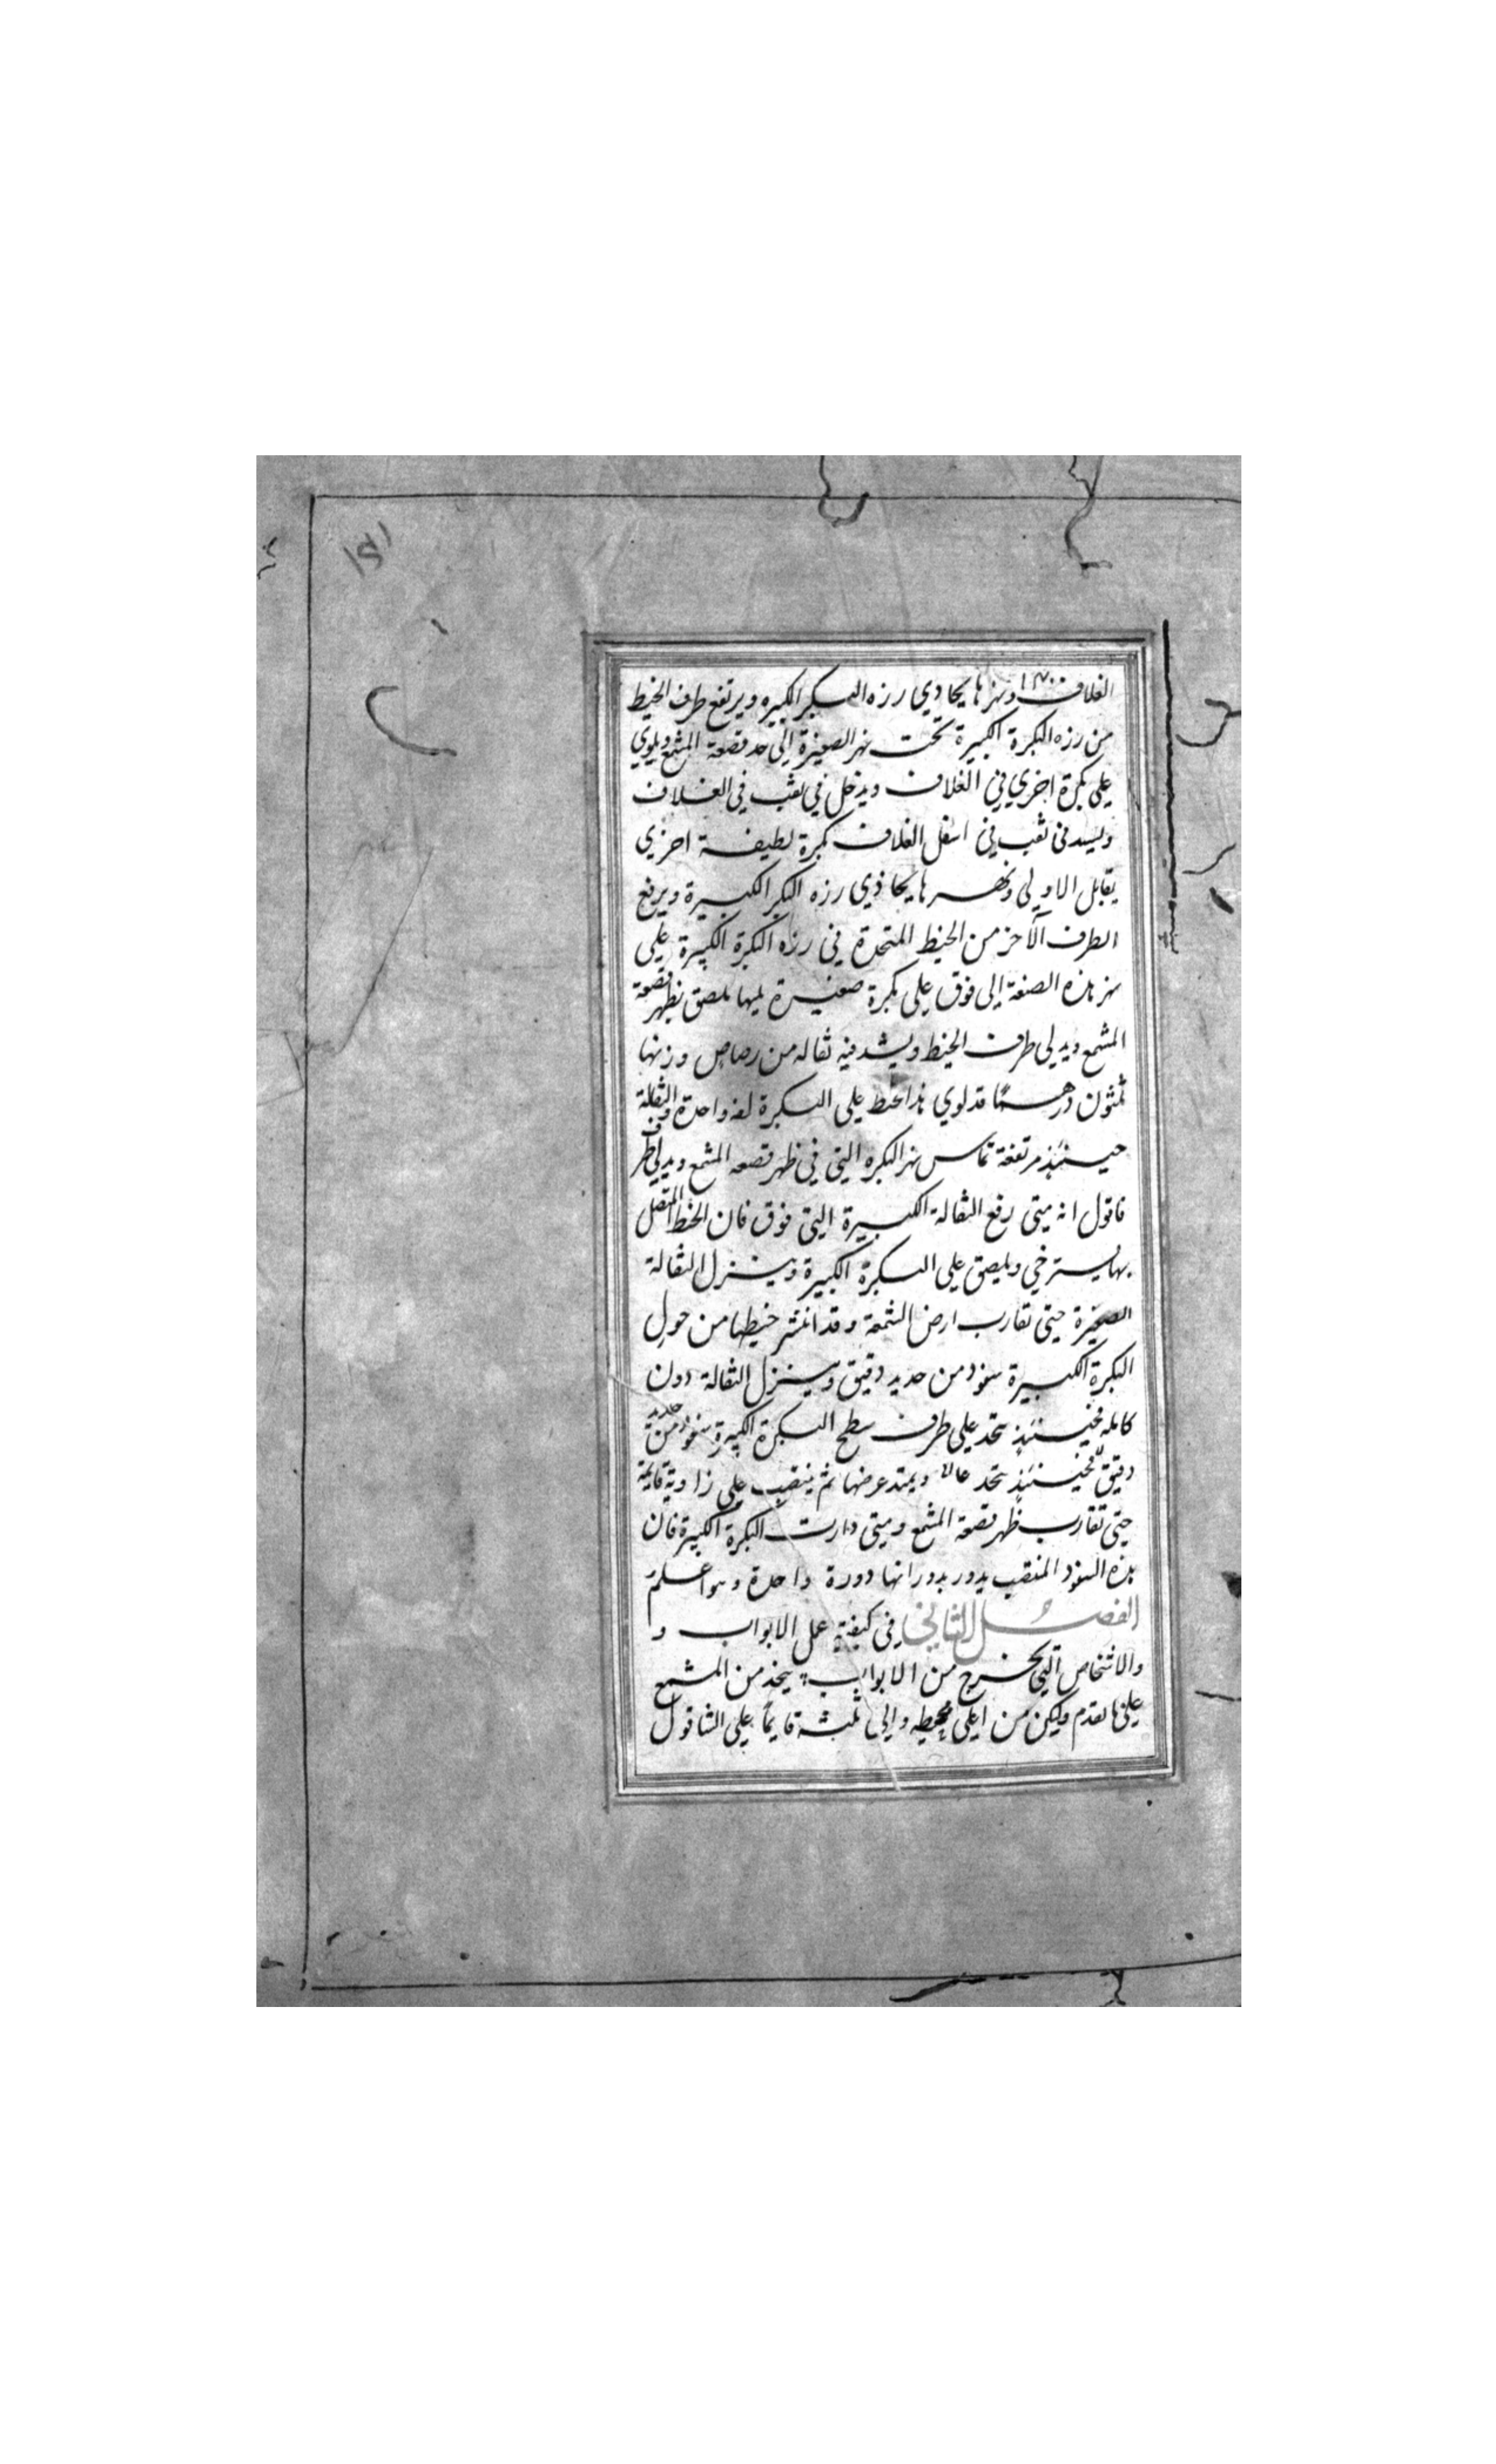 ١٥١
الغلاف ونهرها يحاذي رزه البكر الكبيره ويرتفع طرف الخيط
من رزه البكرة الكبيرة تحت نهر الصغيرة إلى حد قصعة المشمع ويلوي
على بكرة اخرى في الغلاف ويدخل في ثقب في الغلاف
ويسد في ثقب في اسفل الغلاف بكرة لطيفة اخرى
يقابل الاولى ونهرها يحاذي رزه البكر الكبيرة ويرفع
الطرف الآخر من الخيط المتحدة في رزه البكرة الكبيرة على
نهر هذه الصنعة إلى فوق على بكرة صغيرة يليها ملصق بظهر قصعة
المشمع ويدلى طرف الخيط ويشد فيه ثقاله من رصاص وزنها
ثلثون درهما قد لوي هذا الخيط على البكرة لفه واحدة والثقالة
حينئذ مرتفعة تماس نهر البكره التي في ظهر قصعه المشمع ويدلى طرف
فاقول انه متى رفع الثقالة الكبيرة التي فوق فان الخيط المتصل
بها يسترخي ويلصق على البكرة الكبيرة وينزل الثقالة
الصغيرة حتى تقارب ارض الشمعة وقد انتشر خيطها من حول
البكرة الكبيرة سفود من حديد دقيق وينزل الثقالة دون
كامله فحينئذ يتخذ على طرف سطح البكرة الكبيرة سفود من حديد
دقيق فحينئذ يتخذ ويمتد عرضها ثم ينتصب على زاوية قائمة
حتى تقارب ظهر قصعة المشمع ومتى دارت البكرة الكبيرة فان
هذه السفود المنتصب يدور بدورانها دورة واحدة وهو اعلم
الفصل الثاني في كيفية عمل الابواب و
والاشخاص التي تخرج من الابواب يتخذ من المشمع
على ما تقدم وليكن من اعلى محيطه والى ثلثه قايما على الشاقول